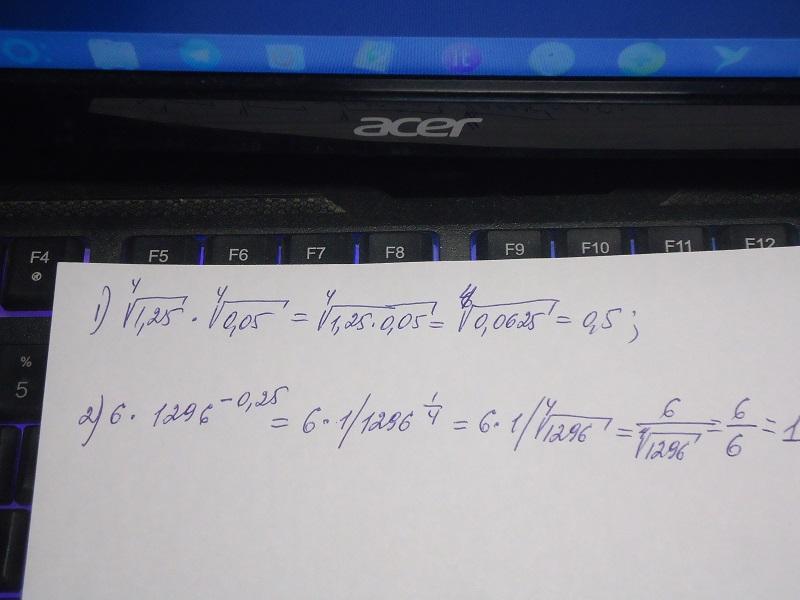 acer
F4 F5 F6 F7 F8 F9 F10 F11 F12
1) ∜1,25 · ∜0,05 = ∜1,25·0,05 = ∜0,0625 = 0,5;
%
5
2) 6 · 1296^-0,25 = 6 · 1/1296^1/4 = 6 · 1/∜1296 = 6/∜1296 = 6/6 = 1